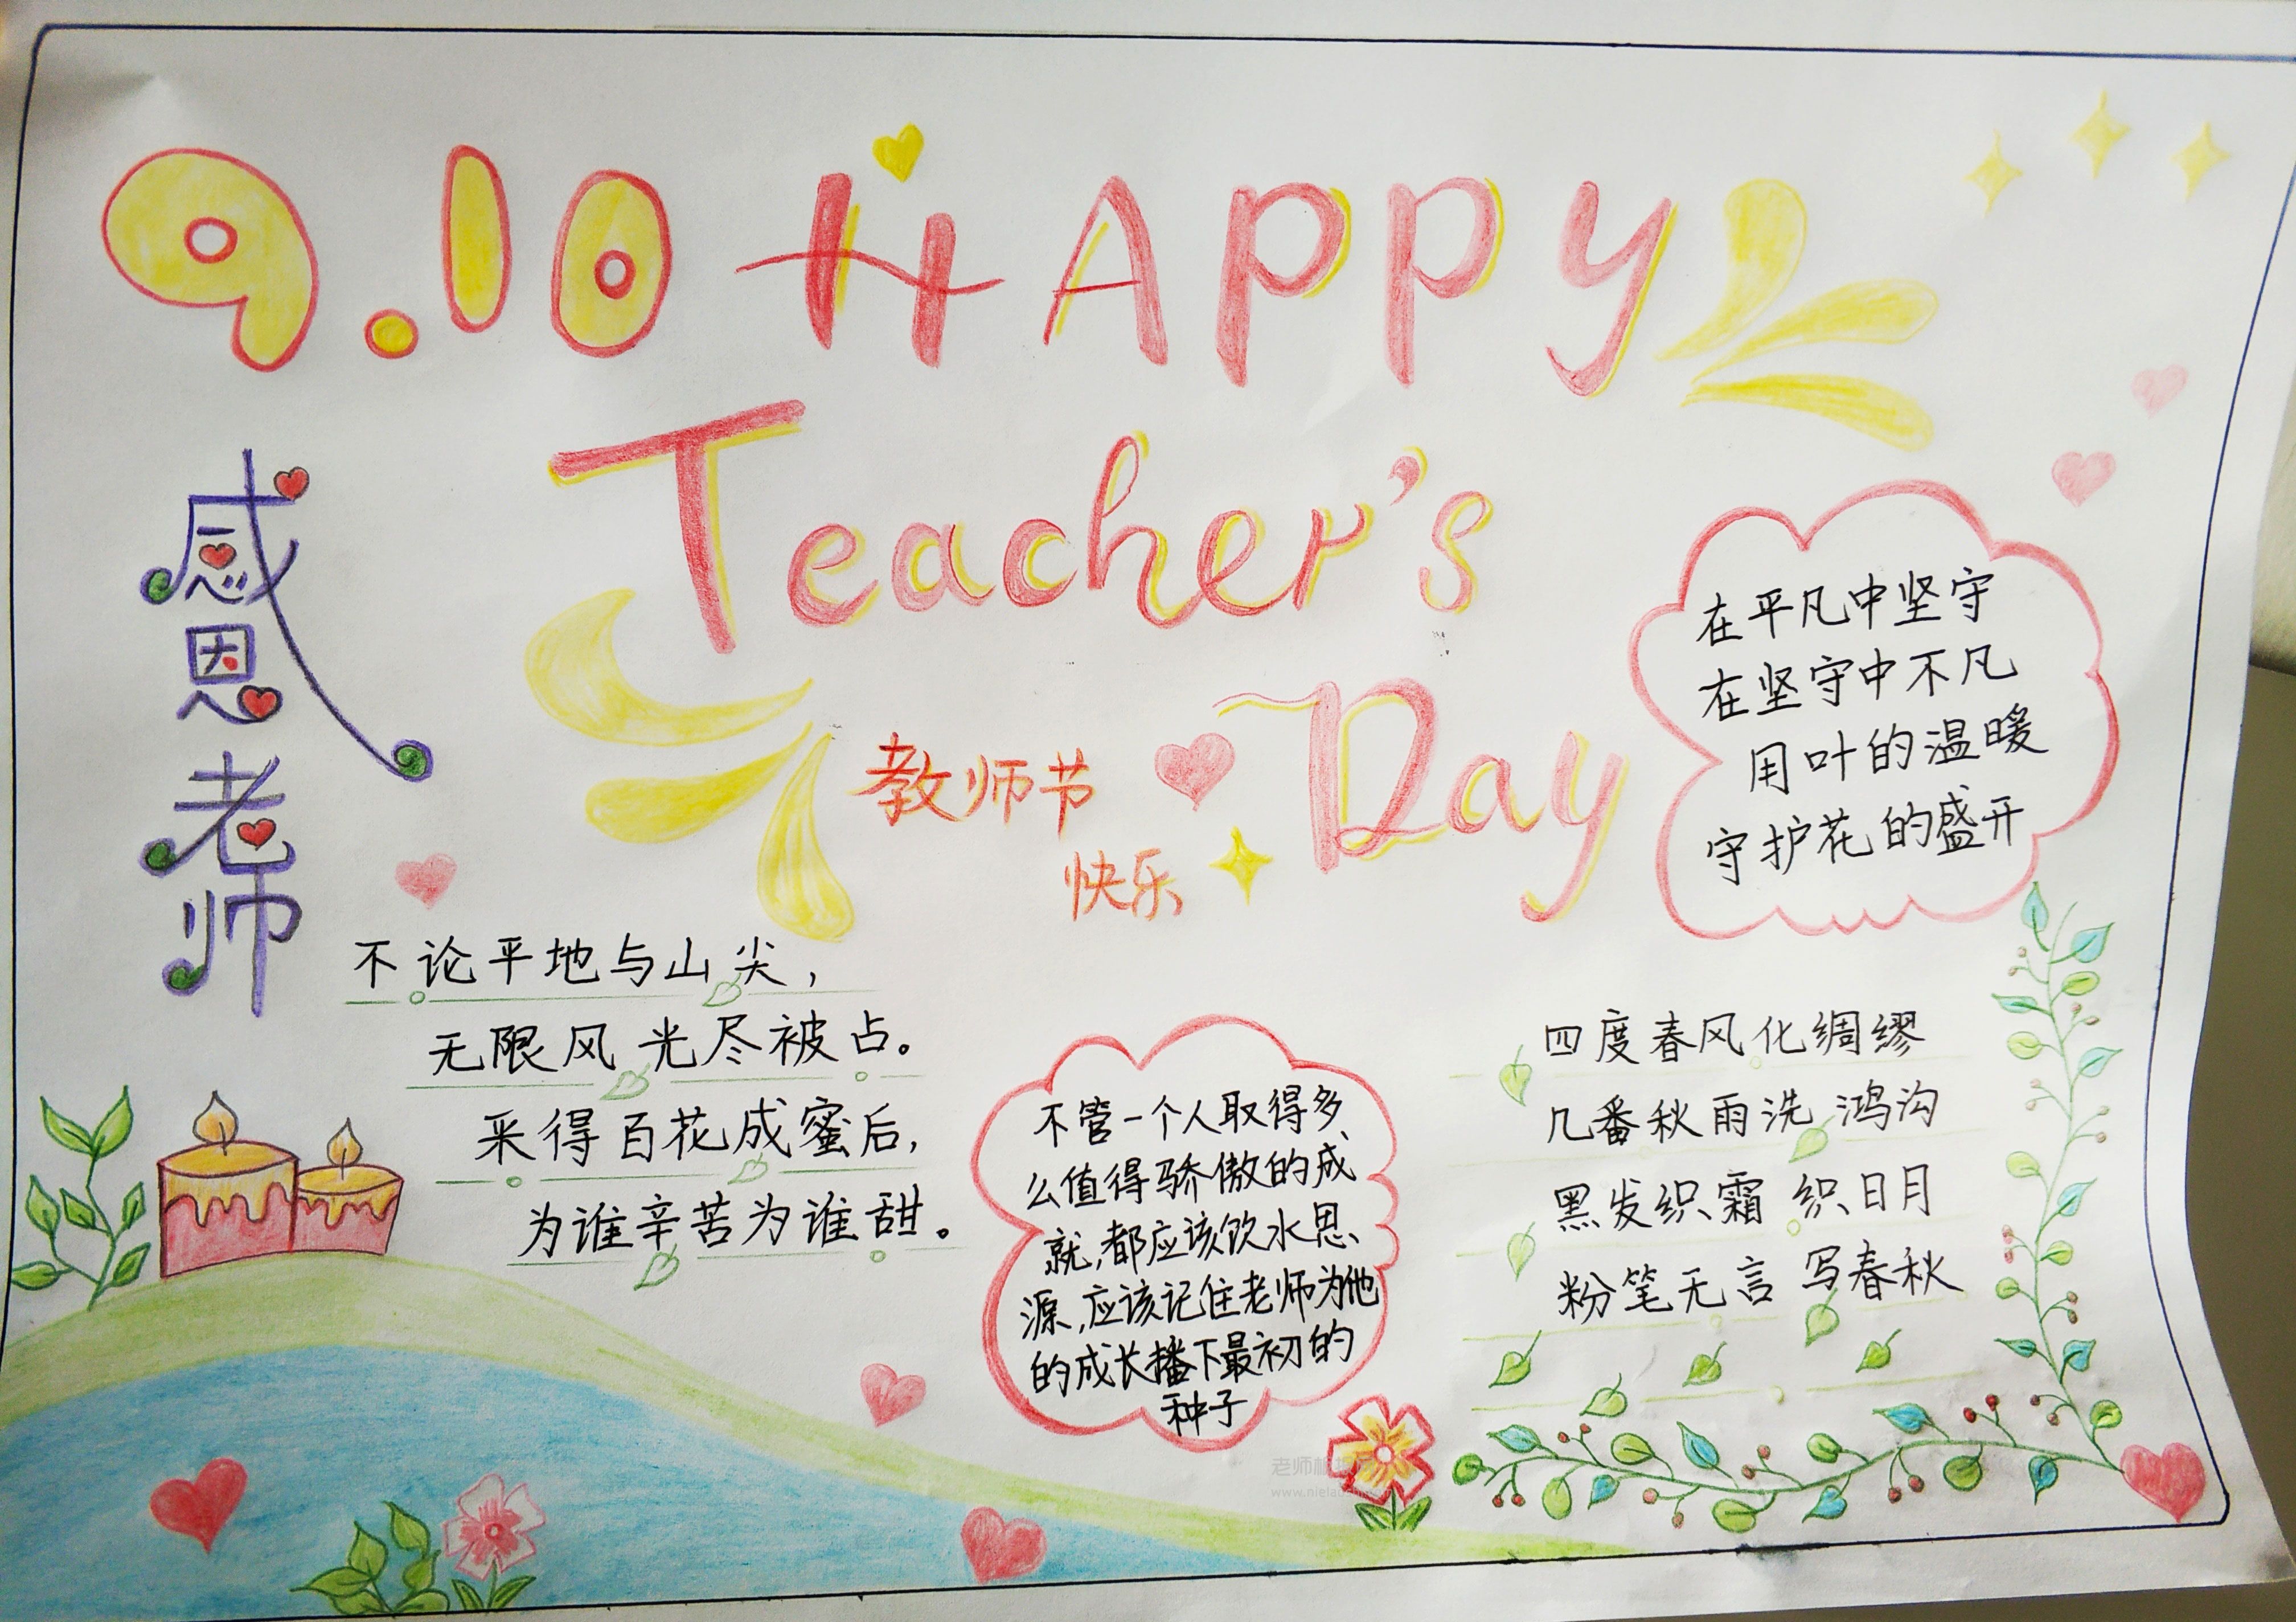 9.10 HAPPY
Teacher's
Day
教师节
快乐
感恩老师
在平凡中坚守
在坚守中不凡
用叶的温暖
守护花的盛开
不论平地与山尖，
无限风光尽被占。
采得百花成蜜后，
为谁辛苦为谁甜。
不管一个人取得多
么值得骄傲的成
就，都应该饮水思
源，应该记住老师为他
的成长播下最初的
种子
四度春风化绸缪
几番秋雨洗鸿沟
黑发织霜织日月
粉笔无言写春秋